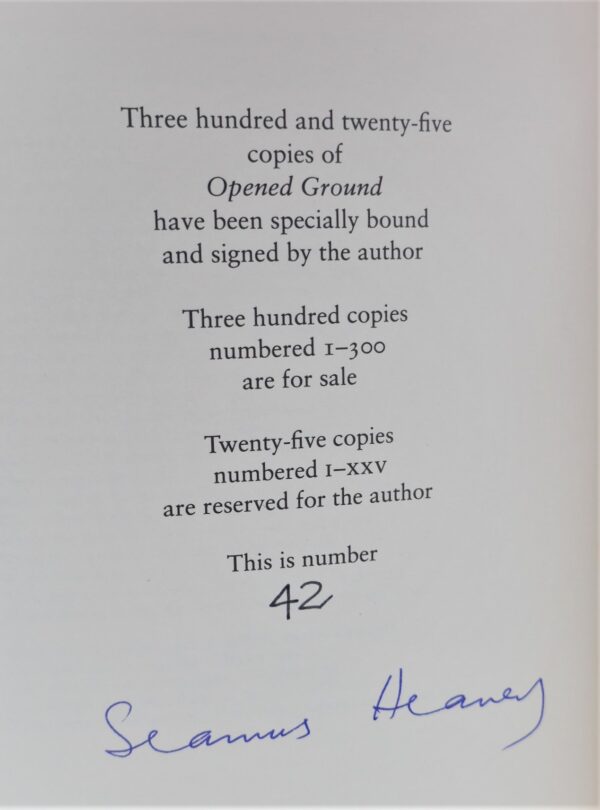 Three hundred and twenty-five
copies of
Opened Ground
have been specially bound
and signed by the author
Three hundred copies
numbered 1–300
are for sale
Twenty-five copies
numbered I–XXV
are reserved for the author
This is number
42
Seamus Heaney